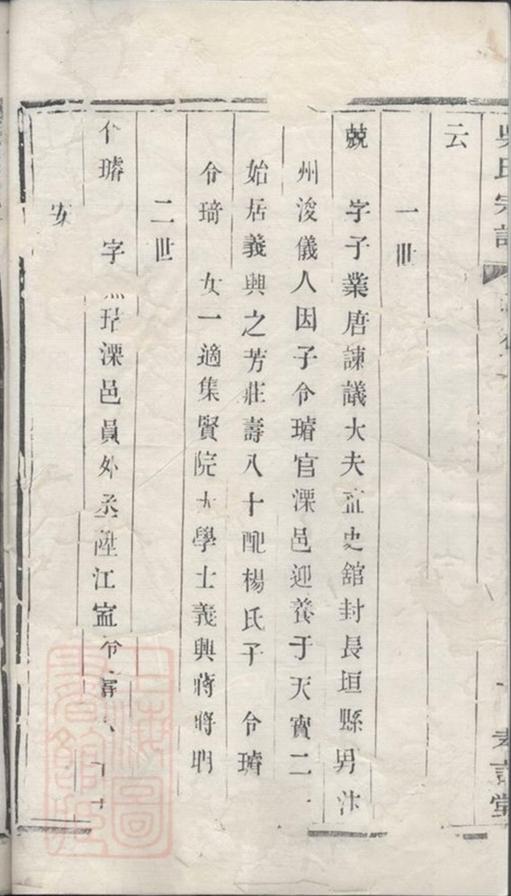 吳氏宗譜
云
一世
兢 字子業唐諫議大夫直史舘封長垣縣男汴
州浚儀人因子令瑨官溧邑迎養于天寶二
始居義興之芳莊壽八十配楊氏子 令瑨
令琦 女一適集賢院大學士義興蔣將明
二世
令瑨 字 溧邑員外丞陞江寧令壽
安
上海圖書館藏